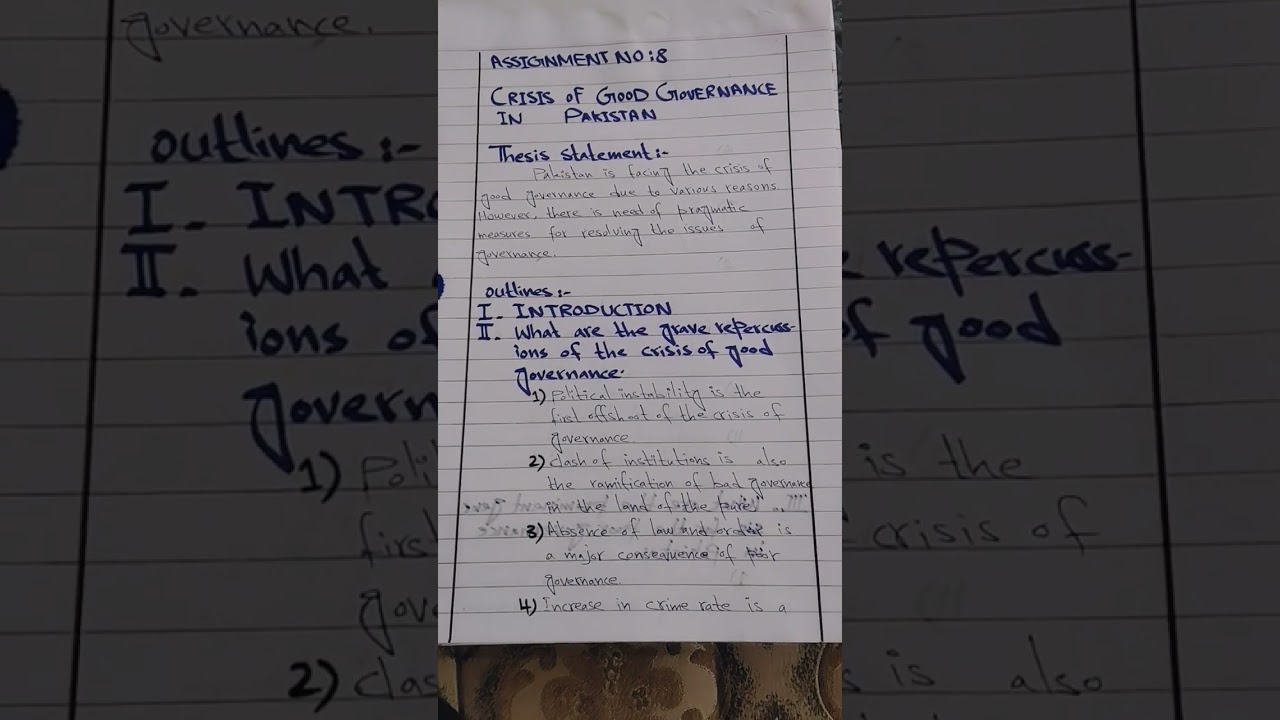 ASSIGNMENT NO:8
CRISIS OF GOOD GOVERNANCE
IN PAKISTAN
Thesis statement:-
Pakistan is facing the crisis of
good governance due to various reasons.
However, there is need of pragmatic
measures for resolving the issues of
governance.
outlines:-
I. INTRODUCTION
II. What are the grave repercuss-
ions of the crisis of good
governance.
1) Political instability is the
first offshoot of the crisis of
governance.
2) clash of institutions is also
the ramification of bad governance
in the land of the pure.
3) Absence of law and order is
a major consequence of poor
governance.
4) Increase in crime rate is a